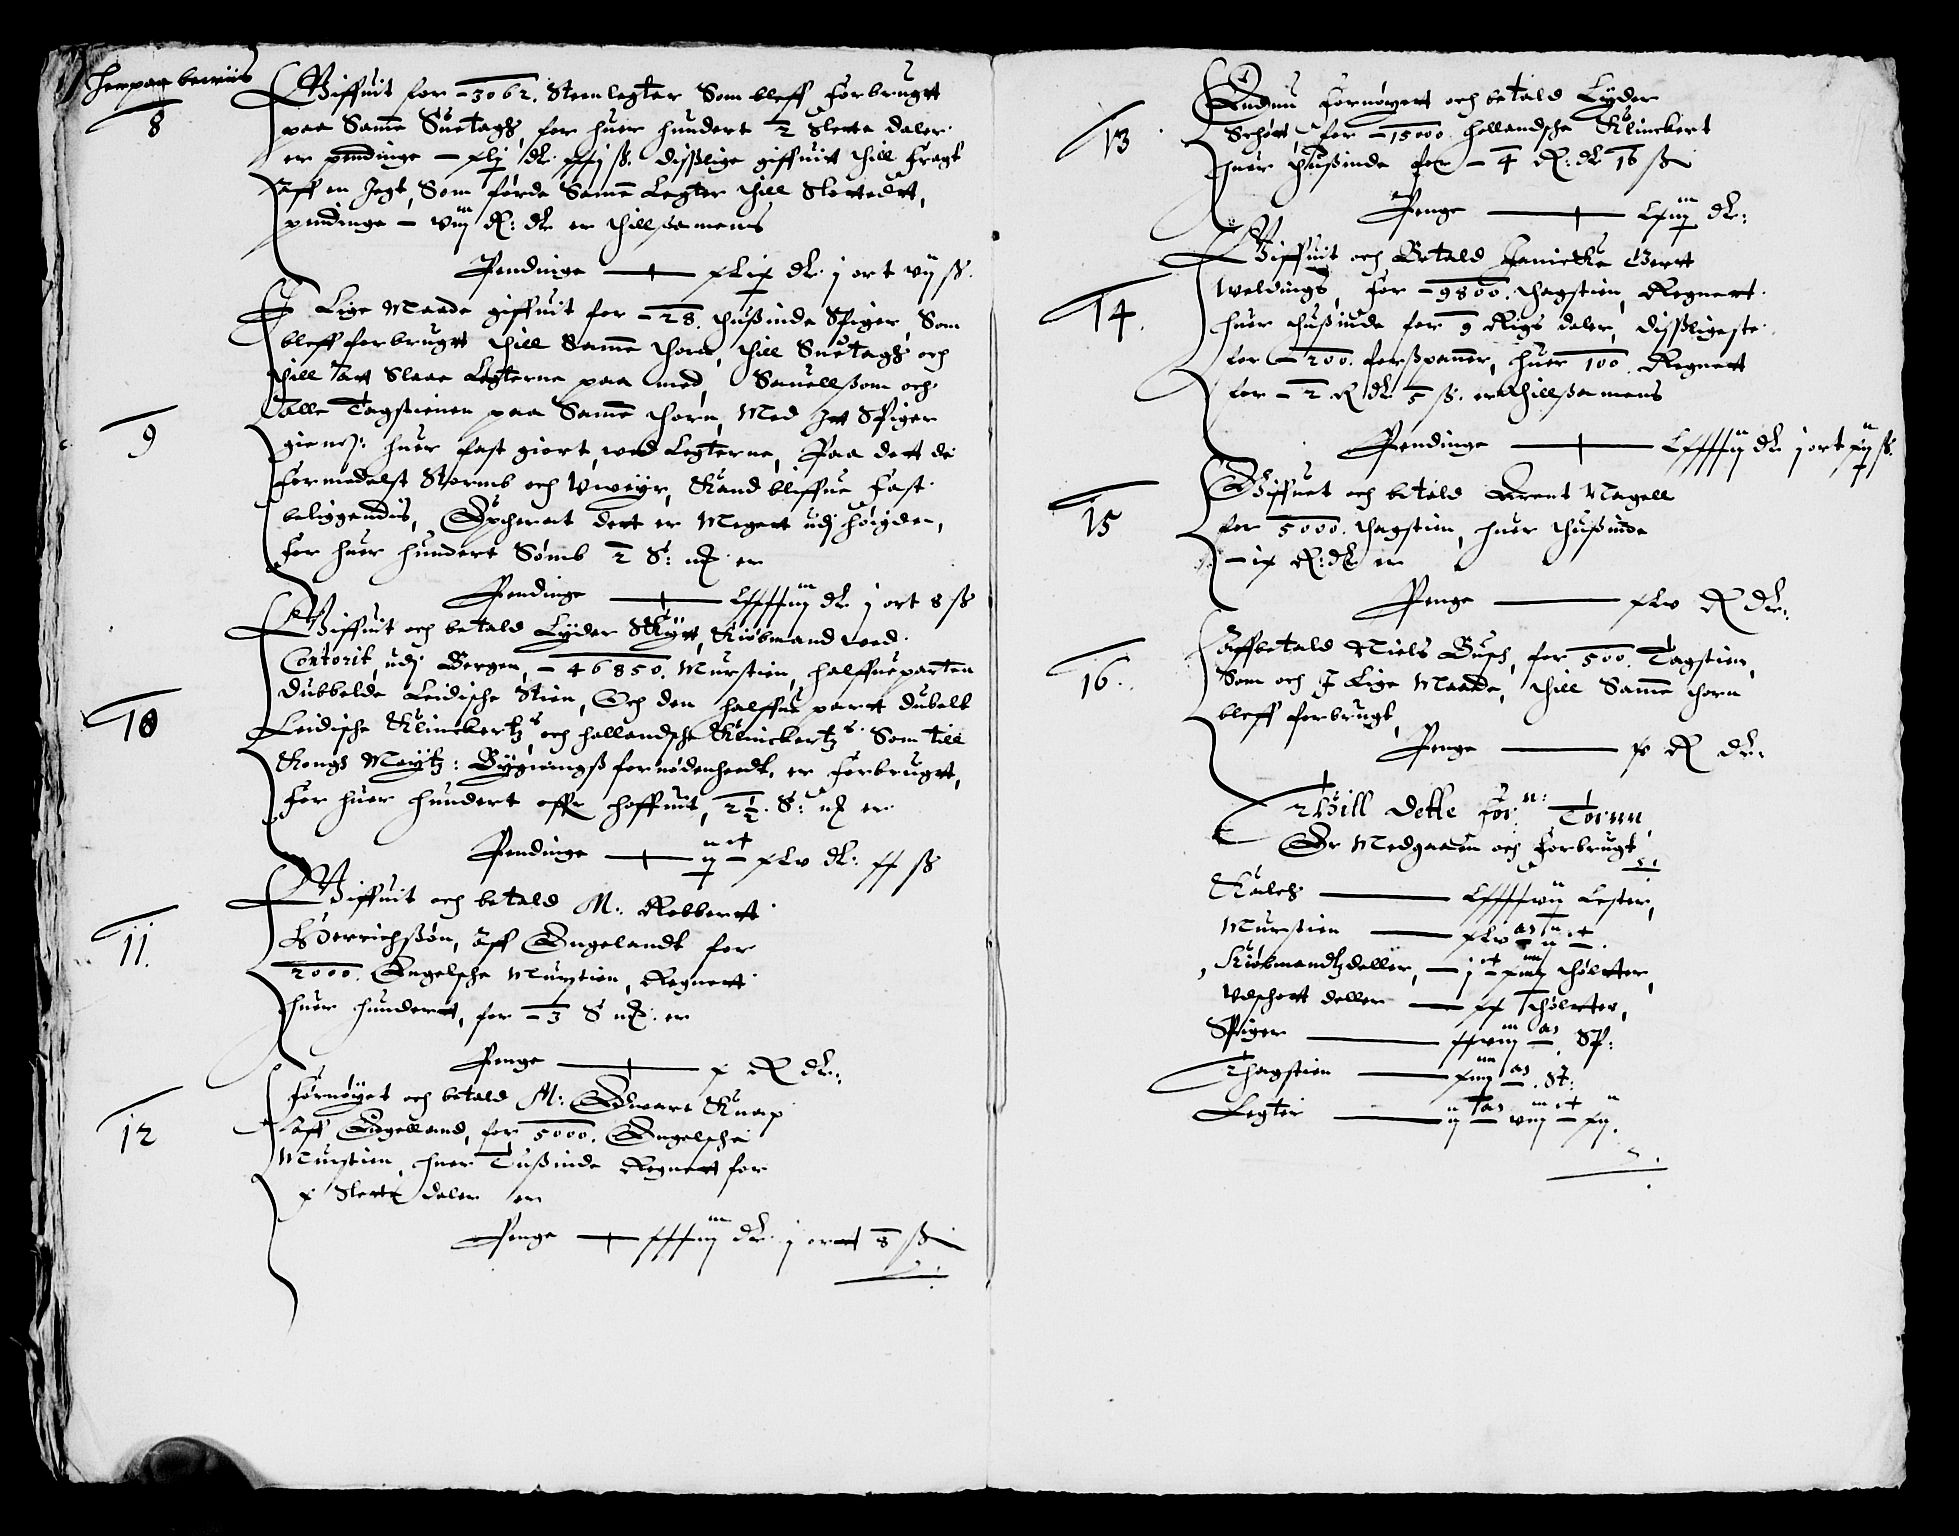 Herpaa beuiis
8
Giffuit for – 3062. Steenlegter Som bleff forbrugtt
paa Samē Suetagh, for huer hundert 2 Slette daler
er pendinge – xlj dlr. xxxj ß. disslige giffuitt thill fragt
aff en Jegt, Som førde Samē Legter thill Slottedtt,
pendinge – viij R: dlr er thillsamens
Pendinge — xlix dlr. j ort vij ß.
9
J Lige Maade giffuit for – 28. thusinde Spiger, Som
bleff forbrugtt thill Samē thorn, thill Suetagh och
thill att Slaae Legterne paa med, Sauellsom och
alle Tagstienen paa Samē thorn, Med Jtt Spiger
gienn: huer fast giort, wed Legterne, Paa dett de
formedelst Stormb och Vweyr, Kand bliffue fast
beliggendis, Epcherat dett er Megett udj høigden,
for huer hundert Sømb 2 S: lybs er
Pendinge — lxxxxiij dlr j ort 8 ß
10
Giffuit och betald Lyder Skytt, Kiøbmand wed
Contorit, udj Bergen, – 46850. Murstien, halffueparten
dubbelde Leidische Stien, Och den halffue partt dubelt
Leidische Klinckertz, och hollandsche Klinckertz Som till
Kongs Maytz: Bygningß fornødenheedt, er forbrugtt,
for huer hundert offr hoffuit, 2½. S: lybs er
Pendinge — ijc xlv dlr: xx ß
11
Giffuit och betald M: Robbertt
Herrichssøn, aff Engelandt for
2000. Engelsche Murstien, Regnertt
huer hundertt, for – 3 S lybs. er
Penge — x R dlr:
12
Fornøyet och betald M: Edwart Knap
aff Engelland, for 5000. Engelsche
Murstien, huer Tusinde Regnertt for
x Slette daler er
Penge — xxxiij dlr. j ortt 8 ß
13
Endnu fornøyett och betald Lyder
Schøtt, for – 15000. hollandsche Klinckert
huer thusinde for – 4 R: dlr 16 ß
Penge — lxiij dlr:
14.
Giffuit och Betald Janicke Gertt
Weldings, for – 9800. thagstien, Regnert
huer thusinde for 9 Rigs daler, disligeste
for – 200. forspaner, huer 100. Regnett
for – 2 R dlr 5 ß. er thillsamens
Pendinge — lxxxxij dlr j ort xij ß.
15
Giffuet och betald Berent Nagell
for 5000. thagstien, huer thusinde
– ix R: dlr er
Penge — xlv R dlr:
16.
Affbetald Niels Busch, for 500. Tagstien,
Som och J Lige Maade, thill Samē thorn
bleff forbrugt,
Penge — v R dlr:
Thill dette forn: Tornn,
Er Medgaaen och forbrugt
Kalch — lxxxxvij Lester,
Murstien — xlv
Kiøbmandtz deller, — jc xiiij thølter,
Vdschott deller — xx Thølter,
Spiger — xxviij Sp:
Thagstien — xiiij St:
Legter — ij viijc xij.